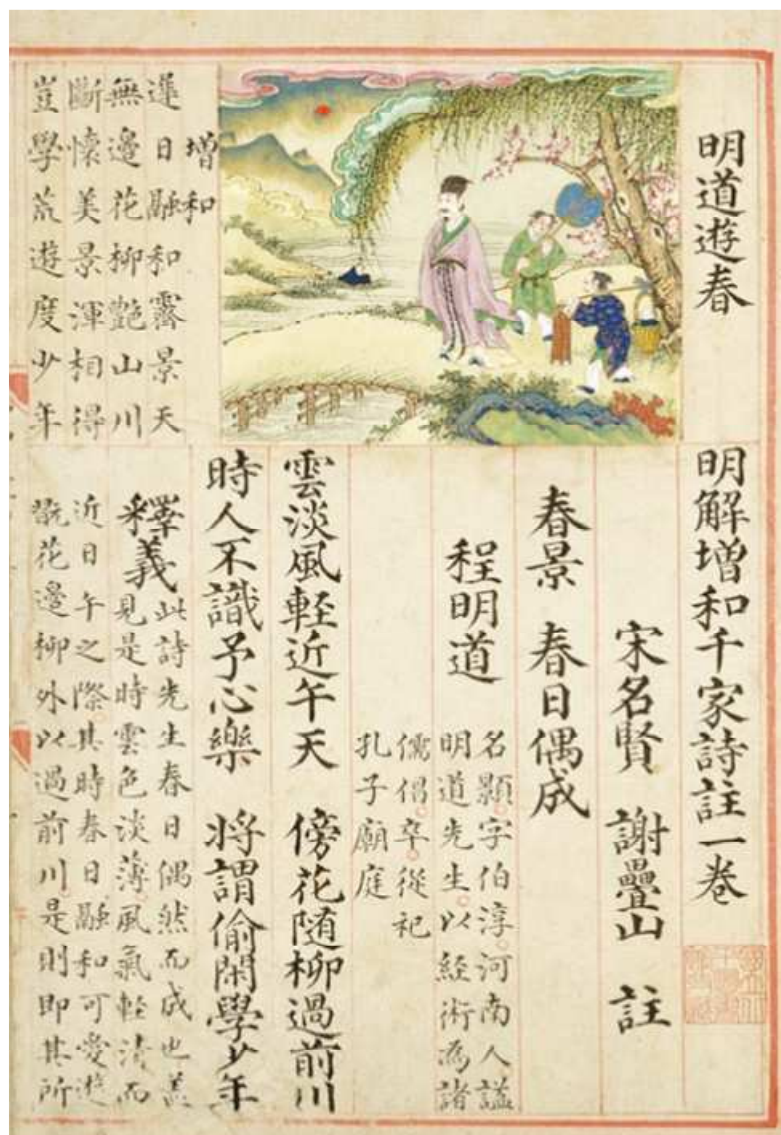 明道遊春
增和
遲日融和霽景天
無邊花柳艷山川
斷懷美景渾相得
豈學荒遊度少年
明解增和千家詩註一卷
宋名賢 謝疊山 註
春景 春日偶成
程明道
名顥。字伯淳。河南人謚
明道先生。以經術為諸
儒倡。卒。從祀
孔子廟庭
雲淡風輕近午天 傍花随柳過前川
時人不識予心樂 將謂偷閑學少年
釋義
此詩先生春日偶然而成也蓋
見是時雲色淡薄。風氣輕清而
近日午之際。其時春日融和可愛遊
翫花邊柳外以過前川。是則即其所